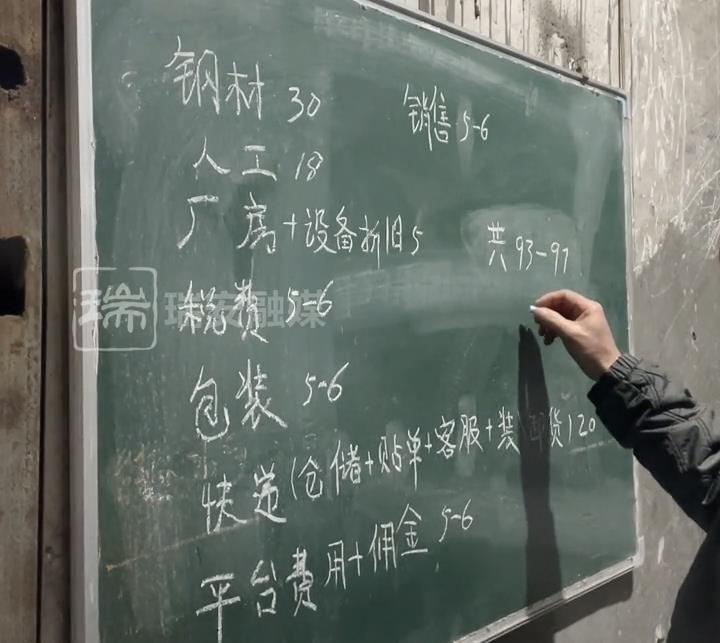 钢材 30
人工 18
厂房+设备折旧5
税费 5-6
包装 5-6
快递(仓储+贴单+客服+装卸货)20
平台费用+佣金 5-6
销售 5-6
共 93-97
瑞 瑞安融媒